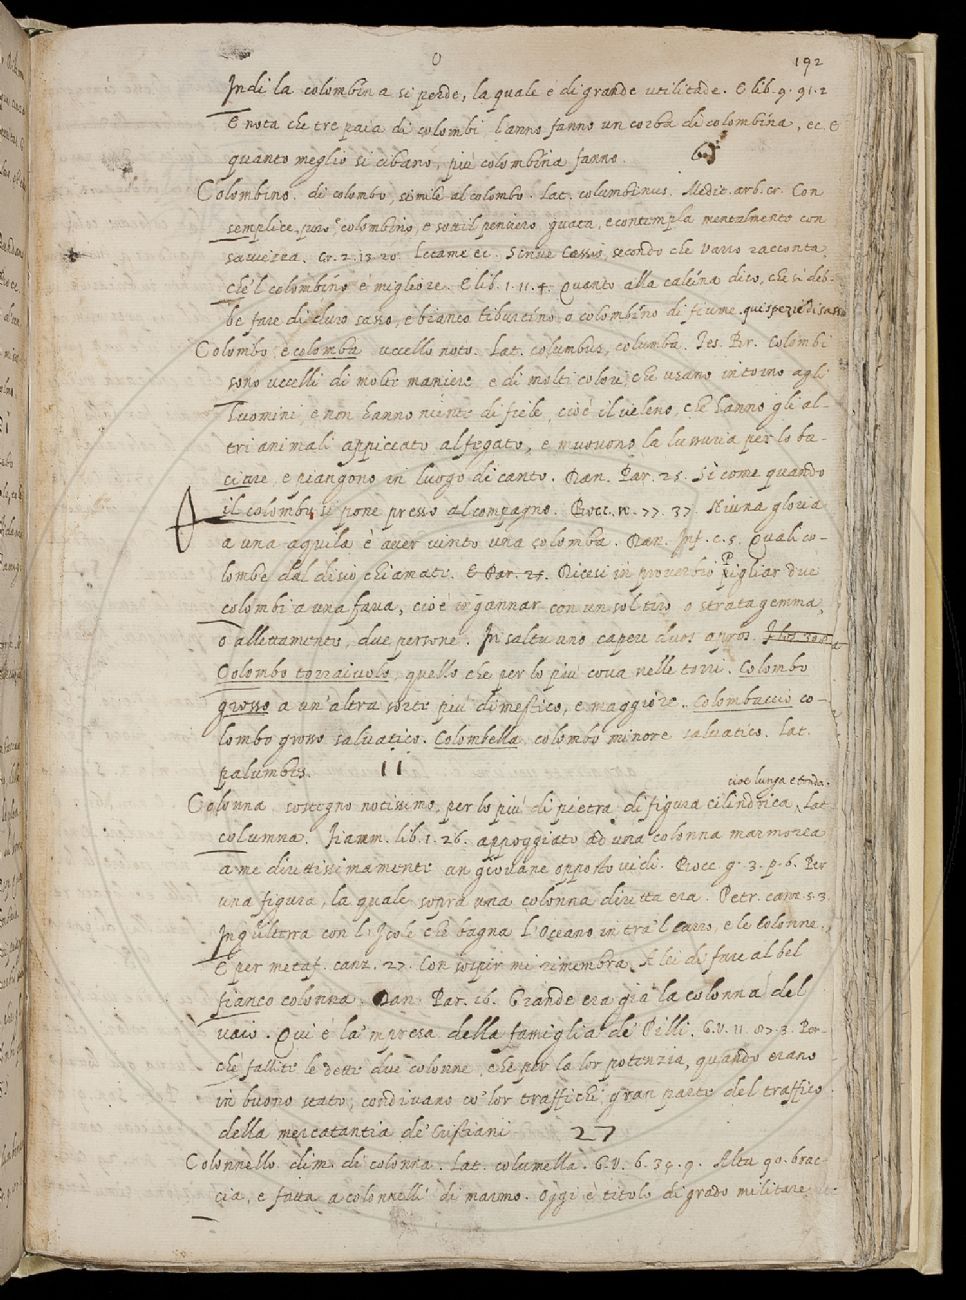 O 192
Indi la colombina si perde, la quale è di grande utilitade. E lib. 9. 91. 2
E nota che tre paia di colombi l'anno fanno un corba di colombina, ec. E
quanto meglio si cibano, più colombina fanno. 6
Colombino. di colombo, simile al colombo. Lat. columbinus. Medit. arb. cr. Con
semplice, puro, colombino, e sottil pensiero guata, e contempla mentalmente con
saviezza. Cr. 2. 13. 20. Letame ec. secondo che Varro racconta,
che'l colombino è migliore. E lib. 1. 11. 4. Quanto alla calcina dico, che si deb-
be fare di duro sasso, e bianco tiburtino, o colombino di fiume. qui spezie di sasso
Colombo, e colomba uccello noto. Lat. columbus, columba. Tes. Br. Colombi
sono uccelli di molte maniere, e di molti colori, che usano intorno agli
huomini, e non hanno niente di fiele, cioè il veleno, che hanno gli al-
tri animali appiccato al fegato, e muovono la lussuria per lo ba-
ciare, e piangono in luogo di canto. Dan. Par. 25. Sì come quando
il colombo si pone presso al compagno. Bocc. n. 77. 37. Niuna gloria
a una aquila è aver vinto una colomba. Dan. Inf. c. 5. Quali co-
lombe dal disio chiamate. E Par. 25. Dicesi in proverbio Pigliar due
colombi a una fava, cioè ingannar con un sol tiro, o stratagemma,
o allettamento, due persone. In saltu uno capere duos apros.
Colombo torraiuolo, quello che per lo più cova nelle torri. Colombo
grosso a un'altra sorte più dimestico, e maggiore. Colombaccio co-
lombo grosso salvatico. Colombella colombo minore salvatico. Lat.
palumbus. 11
cioè lunga e tonda.
Colonna sostegno notissimo, per lo più di pietra di figura cilindrica, Lat.
columna. Fiamm. lib. 1. 26. appoggiato ad una colonna marmorea
a me dirittissimamente un giovane opposto vidi. Bocc. g. 3. p. 6. Per
una figura, la quale sopra una colonna diritta era. Petr. canz. 5. 3.
Inghilterra con l'Isole che bagna L'Oceano intra'l carro, e le colonne.
E per metaf. canz. 27. Con sospir mi rimembra, A lei di fare al bel
fianco colonna. Dan. Par. 16. Grande era già la colonna del
vaio. Qui è la'mpresa della famiglia de' Pilli. G. V. 11. 87. 3. Per-
chè fallite le dette due colonne, che per la lor potenzia, quando erano
in buono stato, condivano co' lor traffichi gran parte del traffico
della mercatantia de' Cristiani 27
Colonnello dim. di colonna. Lat. columella. G. V. 6. 39. 9. Alta 90. brac-
cia, e fatta a colonnelli di marmo. Oggi è titolo di grado militare